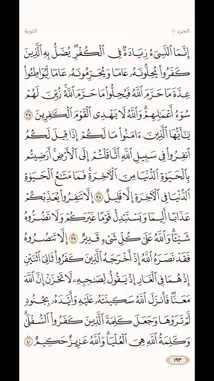 الجزء ١٠
التوبة
إِنَّمَا ٱلنَّسِيٓءُ زِيَادَةٌ فِي ٱلۡكُفۡرِۖ يُضَلُّ بِهِ ٱلَّذِينَ
كَفَرُواْ يُحِلُّونَهُۥ عَامٗا وَيُحَرِّمُونَهُۥ عَامٗا لِّيُوَاطِـُٔواْ
عِدَّةَ مَا حَرَّمَ ٱللَّهُ فَيُحِلُّواْ مَا حَرَّمَ ٱللَّهُۚ زُيِّنَ لَهُمۡ
سُوٓءُ أَعۡمَٰلِهِمۡۗ وَٱللَّهُ لَا يَهۡدِي ٱلۡقَوۡمَ ٱلۡكَٰفِرِينَ ٣٧
يَٰٓأَيُّهَا ٱلَّذِينَ ءَامَنُواْ مَا لَكُمۡ إِذَا قِيلَ لَكُمُ
ٱنفِرُواْ فِي سَبِيلِ ٱللَّهِ ٱثَّاقَلۡتُمۡ إِلَى ٱلۡأَرۡضِۚ أَرَضِيتُم
بِٱلۡحَيَوٰةِ ٱلدُّنۡيَا مِنَ ٱلۡأٓخِرَةِۚ فَمَا مَتَٰعُ ٱلۡحَيَوٰةِ
ٱلدُّنۡيَا فِي ٱلۡأٓخِرَةِ إِلَّا قَلِيلٌ ٣٨ إِلَّا تَنفِرُواْ يُعَذِّبۡكُمۡ
عَذَابًا أَلِيمٗا وَيَسۡتَبۡدِلۡ قَوۡمًا غَيۡرَكُمۡ وَلَا تَضُرُّوهُ
شَيۡـٔٗاۗ وَٱللَّهُ عَلَىٰ كُلِّ شَيۡءٖ قَدِيرٌ ٣٩ إِلَّا تَنصُرُوهُ
فَقَدۡ نَصَرَهُ ٱللَّهُ إِذۡ أَخۡرَجَهُ ٱلَّذِينَ كَفَرُواْ ثَانِيَ ٱثۡنَيۡنِ
إِذۡ هُمَا فِي ٱلۡغَارِ إِذۡ يَقُولُ لِصَٰحِبِهِۦ لَا تَحۡزَنۡ إِنَّ ٱللَّهَ
مَعَنَاۖ فَأَنزَلَ ٱللَّهُ سَكِينَتَهُۥ عَلَيۡهِ وَأَيَّدَهُۥ بِجُنُودٖ
لَّمۡ تَرَوۡهَا وَجَعَلَ كَلِمَةَ ٱلَّذِينَ كَفَرُواْ ٱلسُّفۡلَىٰۗ
وَكَلِمَةُ ٱللَّهِ هِيَ ٱلۡعُلۡيَاۗ وَٱللَّهُ عَزِيزٌ حَكِيمٌ ٤٠
١٩٣